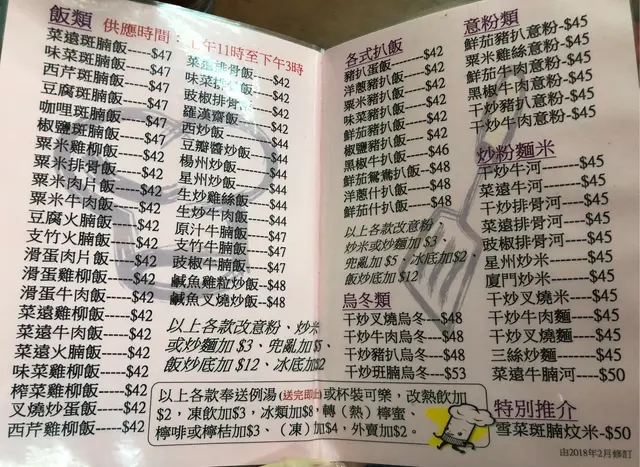 飯類
供應時間：上午11時至下午3時
菜遠斑腩飯---$47
味菜斑腩飯---$47
西芹斑腩飯---$47
豆腐斑腩飯---$47
咖哩斑腩飯---$47
椒鹽斑腩飯---$47
粟米雞柳飯----$42
粟米排骨飯----$42
粟米肉片飯----$42
粟米牛肉飯----$42
豆腐火腩飯----$42
支竹火腩飯----$42
滑蛋肉片飯----$42
滑蛋雞柳飯----$42
滑蛋牛肉飯-----$42
菜遠雞柳飯-----$42
菜遠牛肉飯-----$42
菜遠火腩飯-----$42
味菜雞柳飯-----$42
榨菜雞柳飯-----$42
叉燒炒蛋飯-----$42
西芹雞柳飯-----$42
菜遠排骨飯----$42
味菜排骨飯----$42
豉椒排骨飯----$42
羅漢齋飯------$42
西炒飯--------$44
豆瓣醬炒飯----$44
楊州炒飯------$44
星州炒飯------$44
生炒雞絲飯----$44
生炒牛肉飯----$44
原汁牛腩飯----$47
支竹牛腩飯----$47
豉椒牛腩飯----$47
鹹魚雞粒炒飯--$48
鹹魚叉燒炒飯--$48
以上各款改意粉、炒米
或炒麵加 $3、兜亂加 $5、
飯炒底加 $12、冰底加$2
各式扒飯
豬扒蛋飯------$42
洋蔥豬扒飯----$42
粟米豬扒飯----$42
味菜豬扒飯----$42
鮮茄豬扒飯----$42
椒鹽豬扒飯----$42
黑椒牛扒飯----$46
鮮茄鴛鴦扒飯--$48
洋蔥什扒飯----$48
鮮茄什扒飯----$48
以上各款改意粉、
炒米或炒麵加 $3、
兜亂加 $5、冰底加$2、
飯炒底加 $12
烏冬類
干炒叉燒烏冬---$48
干炒牛肉烏冬---$48
干炒豬扒烏冬---$48
干炒班腩烏冬---$53
意粉類
鮮茄豬扒意粉-$45
粟米雞絲意粉-$45
鮮茄牛肉意粉-$45
黑椒牛肉意粉-$45
干炒豬扒意粉-$45
干炒牛肉意粉-$45
炒粉麵米
干炒牛河-------$45
菜遠牛河-------$45
干炒排骨河----$45
菜遠排骨河----$45
豉椒排骨河----$45
星州炒米-------$45
廈門炒米-------$45
干炒叉燒米----$45
干炒牛肉麵----$45
干炒叉燒麵----$45
三絲炒麵-------$45
菜遠牛腩河----$50
特別推介
雪菜斑腩炆米-$50
以上各款奉送例湯(送完即止)或杯裝可樂，改熱飲加
$2，凍飲加$3，冰類加$8，轉（熱）檸蜜、
檸啡或檸桔加$3、（凍）加$4，外賣加$2。
由2018年2月修訂